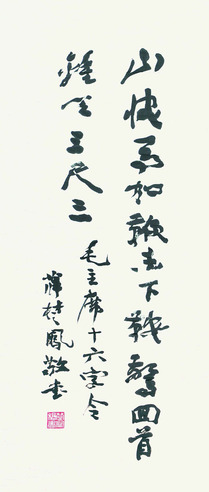 山快馬加鞭未下鞍驚回首
離天三尺三
毛主席十六字令
蔣楚鳳敬書